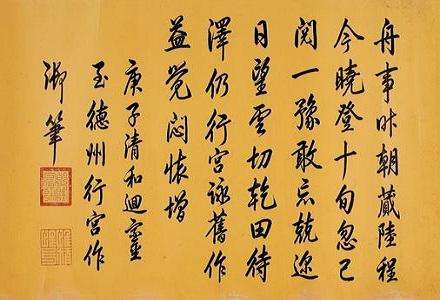 舟事昨朝蕆陸程
今曉登十旬忽已
閱一豫敢忘兢迩
日望雲切乾田待
澤仍行宮詠舊作
益覺悶懷增
庚子清和迴鑾
至德州行宮作
御筆